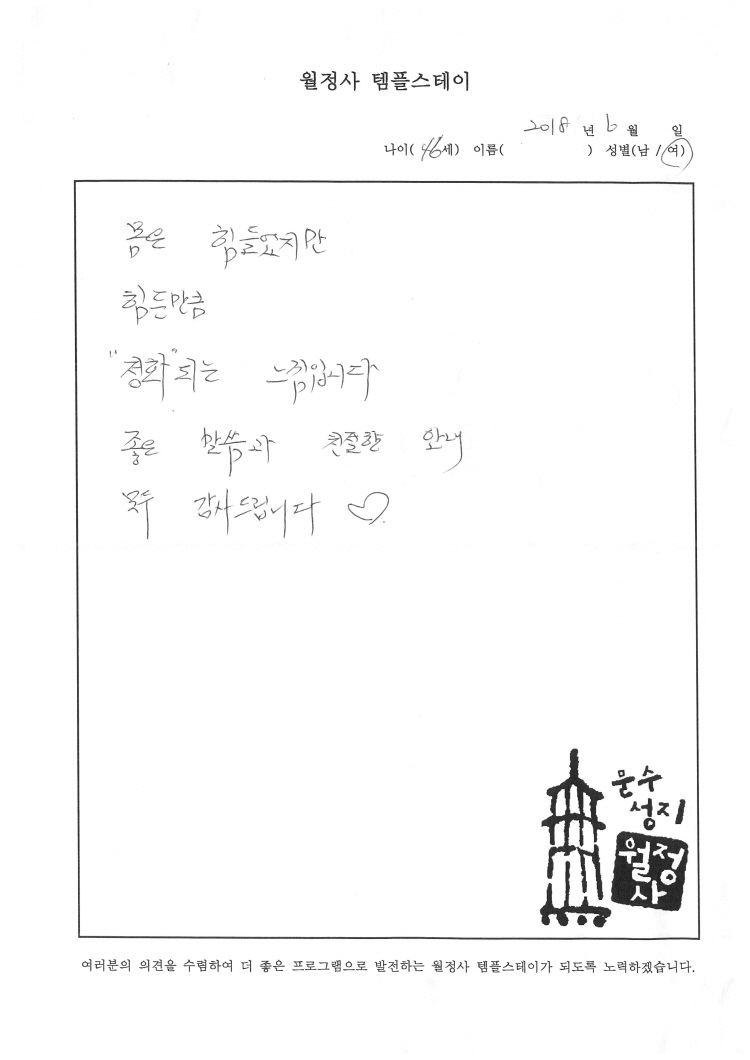 월정사 템플스테이
2018 년 6 월 일
나이( 46세) 이름( ) 성별(남 / 여)
몸은 힘들었지만
힘든만큼
"정화"되는 느낌입니다
좋은 말씀과 친절한 안내
모두 감사드립니다 ♡
문수
성지
월정
사
여러분의 의견을 수렴하여 더 좋은 프로그램으로 발전하는 월정사 템플스테이가 되도록 노력하겠습니다.